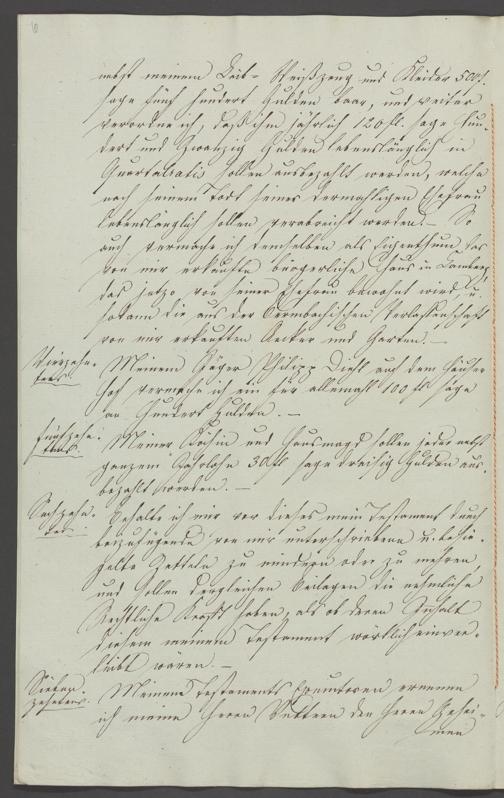 nebst meinem Leib-Weißzeug und Kleider 500 fl.
sage fünf hundert Gulden baar, und weiter
verordne ich, daß ihm jährlich 120 fl. sage hun-
dert und zwanzig Gulden lebenslänglich in
Quartalratis sollen ausbezahlt werden, welche
nach seinem Todt seiner dermahligen Ehefrau
lebenslänglich sollen verabreicht werden. – So
auch vermache ich demselben als Eigenthum das
von mir erkaufte bürgerliche Haus in Camberg
das jetzo von seiner Ehefrau bewohnt wird, u.
sodann die aus der Verlassenschaft
von mir erkauften Aecker und Garten. –
Vierzehn-
tens
Meinem Jäger Philipp Diehl auf dem Hauser
hof vermache ich ein für allemahl 100 fl sage
an hundert Gulden. –
Fünfzehn-
tens
Meiner Köchin und Hausmagd sollen jeder nebst
ganzem Jahrlohn 30 fl sage dreisig Gulden aus-
bezahlt werden. –
Sechzehn-
tens
Behalte ich mir vor dieses mein Testament durch
beizufügende von mir unterschriebene u. besie-
gelte Zetteln zu mindern oder zu mehren,
und sollen dergleichen Beilagen die nehmliche
Rechtliche Kraft haben, als ob deren Inhalt
diesem meinem Testament wörtlich einver-
leibt wären. –
Sieben-
zehntens
Meinem Testaments Executoren ernenne
ich meine Herrn Vettern den Herrn Gehei-
men